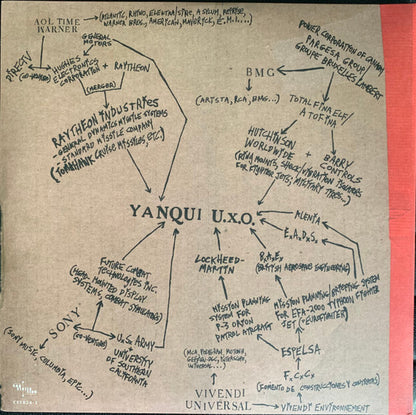 AOL TIME
WARNER
(ATLANTIC, RHINO, ELEKTRA/SIRE, ASYLUM, REPRISE,
WARNER BROS., AMERICAN, MAVERICK, E.M.I., ...)
GENERAL
MOTORS
DIRECTV
(CO-OWNED)
HUGHES
ELECTRONICS
CORPORATION
+ RAYTHEON
(MERGER)
RAYTHEON INDUSTRIES
- GENERAL DYNAMICS MISSILE SYSTEMS
- STANDARD MISSILE COMPANY
(TOMAHAWK CRUISE MISSILES, ETC.)
POWER CORPORATION OF CANADA
PARGESA GROUP
GROUPE BRUXELLES LAMBERT
BMG
(ARISTA, RCA, BMG...)
TOTAL FINA ELF/
ATOFINA
HUTCHINSON
WORLDWIDE
+ BARRY
CONTROLS
FOR FIGHTER JETS, MILITARY TIRES...)
YANQUI U.X.O.
FUTURE COMBAT
TECHNOLOGIES INC.
(HEAD-MOUNTED DISPLAY
SYSTEMS, COMBAT SIMULATORS)
SONY
(CO-VENTURE)
U.S. ARMY
UNIVERSITY
OF SOUTHERN
CALIFORNIA
(SONY MUSIC, COLUMBIA, EPIC...)
LOCKHEED-
MARTIN
MISSION PLANNING
SYSTEM FOR
P-3 ORION
PATROL AIRCRAFT
B.A.E.
(BRITISH AEROSPACE ENGINEERING)
ALENIA
E.A.D.S.
MISSION PLANNING/BRIEFING SYSTEM
FOR EFA-2000 TYPHOON FIGHTER
JET ("EUROFIGHTER")
ESPELSA
F.C.C.
(FOMENTO DE CONSTRUCCIONES Y CONTRATAS)
VIVENDI
UNIVERSAL
VIVENDI ENVIRONNEMENT